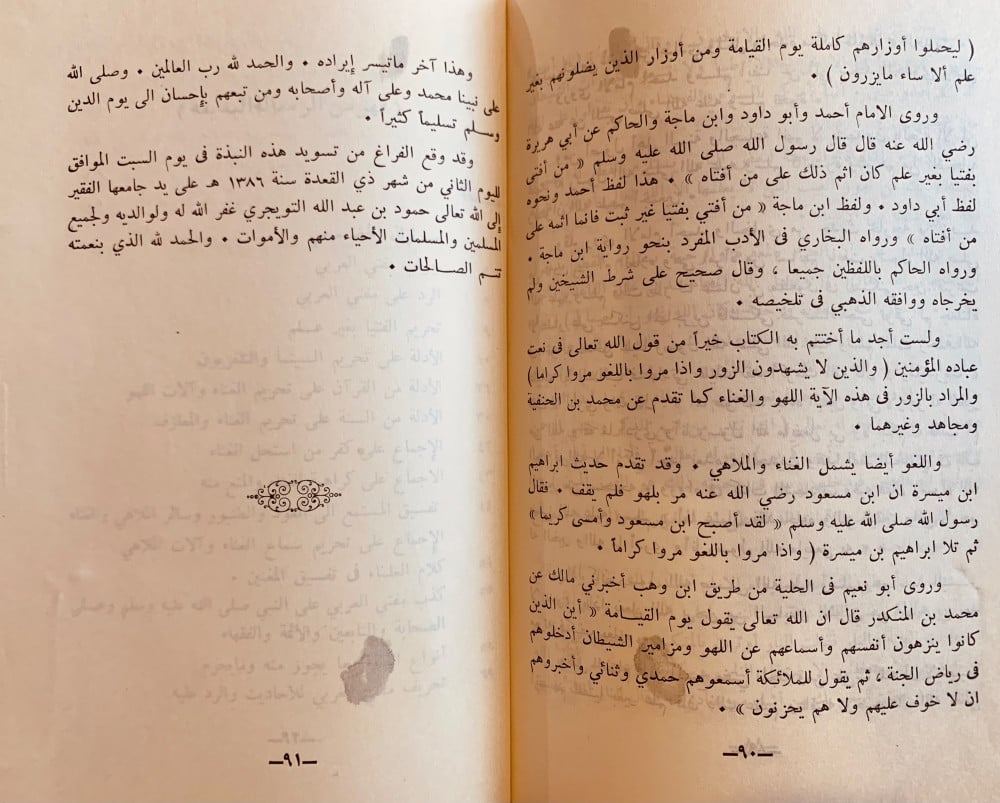 ( ليحملوا أوزارهم كاملة يوم القيامة ومن أوزار الذين يضلونهم بغير
علم ألا ساء مايزرون ) ٠
وروى الامام أحمد وأبو داود وابن ماجة والحاكم عن أبي هريرة
رضي الله عنه قال قال رسول الله صلى الله عليه وسلم « من أفتي
بفتيا بغير علم كان اثم ذلك على من أفتاه » ٠ هذا لفظ أحمد ونحوه
لفظ أبي داود ٠ ولفظ ابن ماجة « من أفتي بفتيا غير ثبت فانما اثمه على
من أفتاه » ورواه البخاري فى الأدب المفرد بنحو رواية ابن ماجة ٠
ورواه الحاكم باللفظين جميعا ، وقال صحيح على شرط الشيخين ولم
يخرجاه ووافقه الذهبي فى تلخيصه ٠
ولست أجد ما أختتم به الكتاب خيراً من قول الله تعالى فى نعت
عباده المؤمنين ( والذين لا يشهدون الزور واذا مروا باللغو مروا كراما )
والمراد بالزور فى هذه الآية اللهو والغناء كما تقدم عن محمد بن الحنفية
ومجاهد وغيرهما ٠
واللغو أيضا يشمل الغناء والملاهي ٠ وقد تقدم حديث ابراهيم
ابن ميسرة ان ابن مسعود رضي الله عنه مر بلهو فلم يقف ٠ فقال
رسول الله صلى الله عليه وسلم « لقد أصبح ابن مسعود وأمسى كريما »
ثم تلا ابراهيم بن ميسرة ( واذا مروا باللغو مروا كراماً ٠
وروى أبو نعيم فى الحلية من طريق ابن وهب أخبرني مالك عن
محمد بن المنكدر قال ان الله تعالى يقول يوم القيـامة « أين الذين
كانوا ينزهون أنفسهم وأسماعهم عن اللهو ومزامير الشيطان أدخلوهم
فى رياض الجنة ، ثم يقول للملائكة أسمعوهم حمدي وثنائي وأخبروهم
ان لا خوف عليهم ولا هم يحزنون » ٠
—٩٠—
وهذا آخر ماتيسر إيراده ٠ والحمد لله رب العالمين ٠ وصلى الله
على نبينا محمد وعلى آله وأصحابه ومن تبعهم بإحسان الى يوم الدين
وسلم تسليماً كثيراً ٠
وقد وقع الفراغ من تسويد هذه النبذة فى يوم السبت الموافق
لليوم الثاني من شهر ذي القعدة سنة ١٣٨٦ هـ على يد جامعها الفقير
إلى الله تعالى حمود بن عبد الله التويجري غفر الله له ولوالديه ولجميع
المسلمين والمسلمات الأحياء منهم والأموات ٠ والحمد لله الذي بنعمته
تتـم الصـالحات ٠
—٩١—